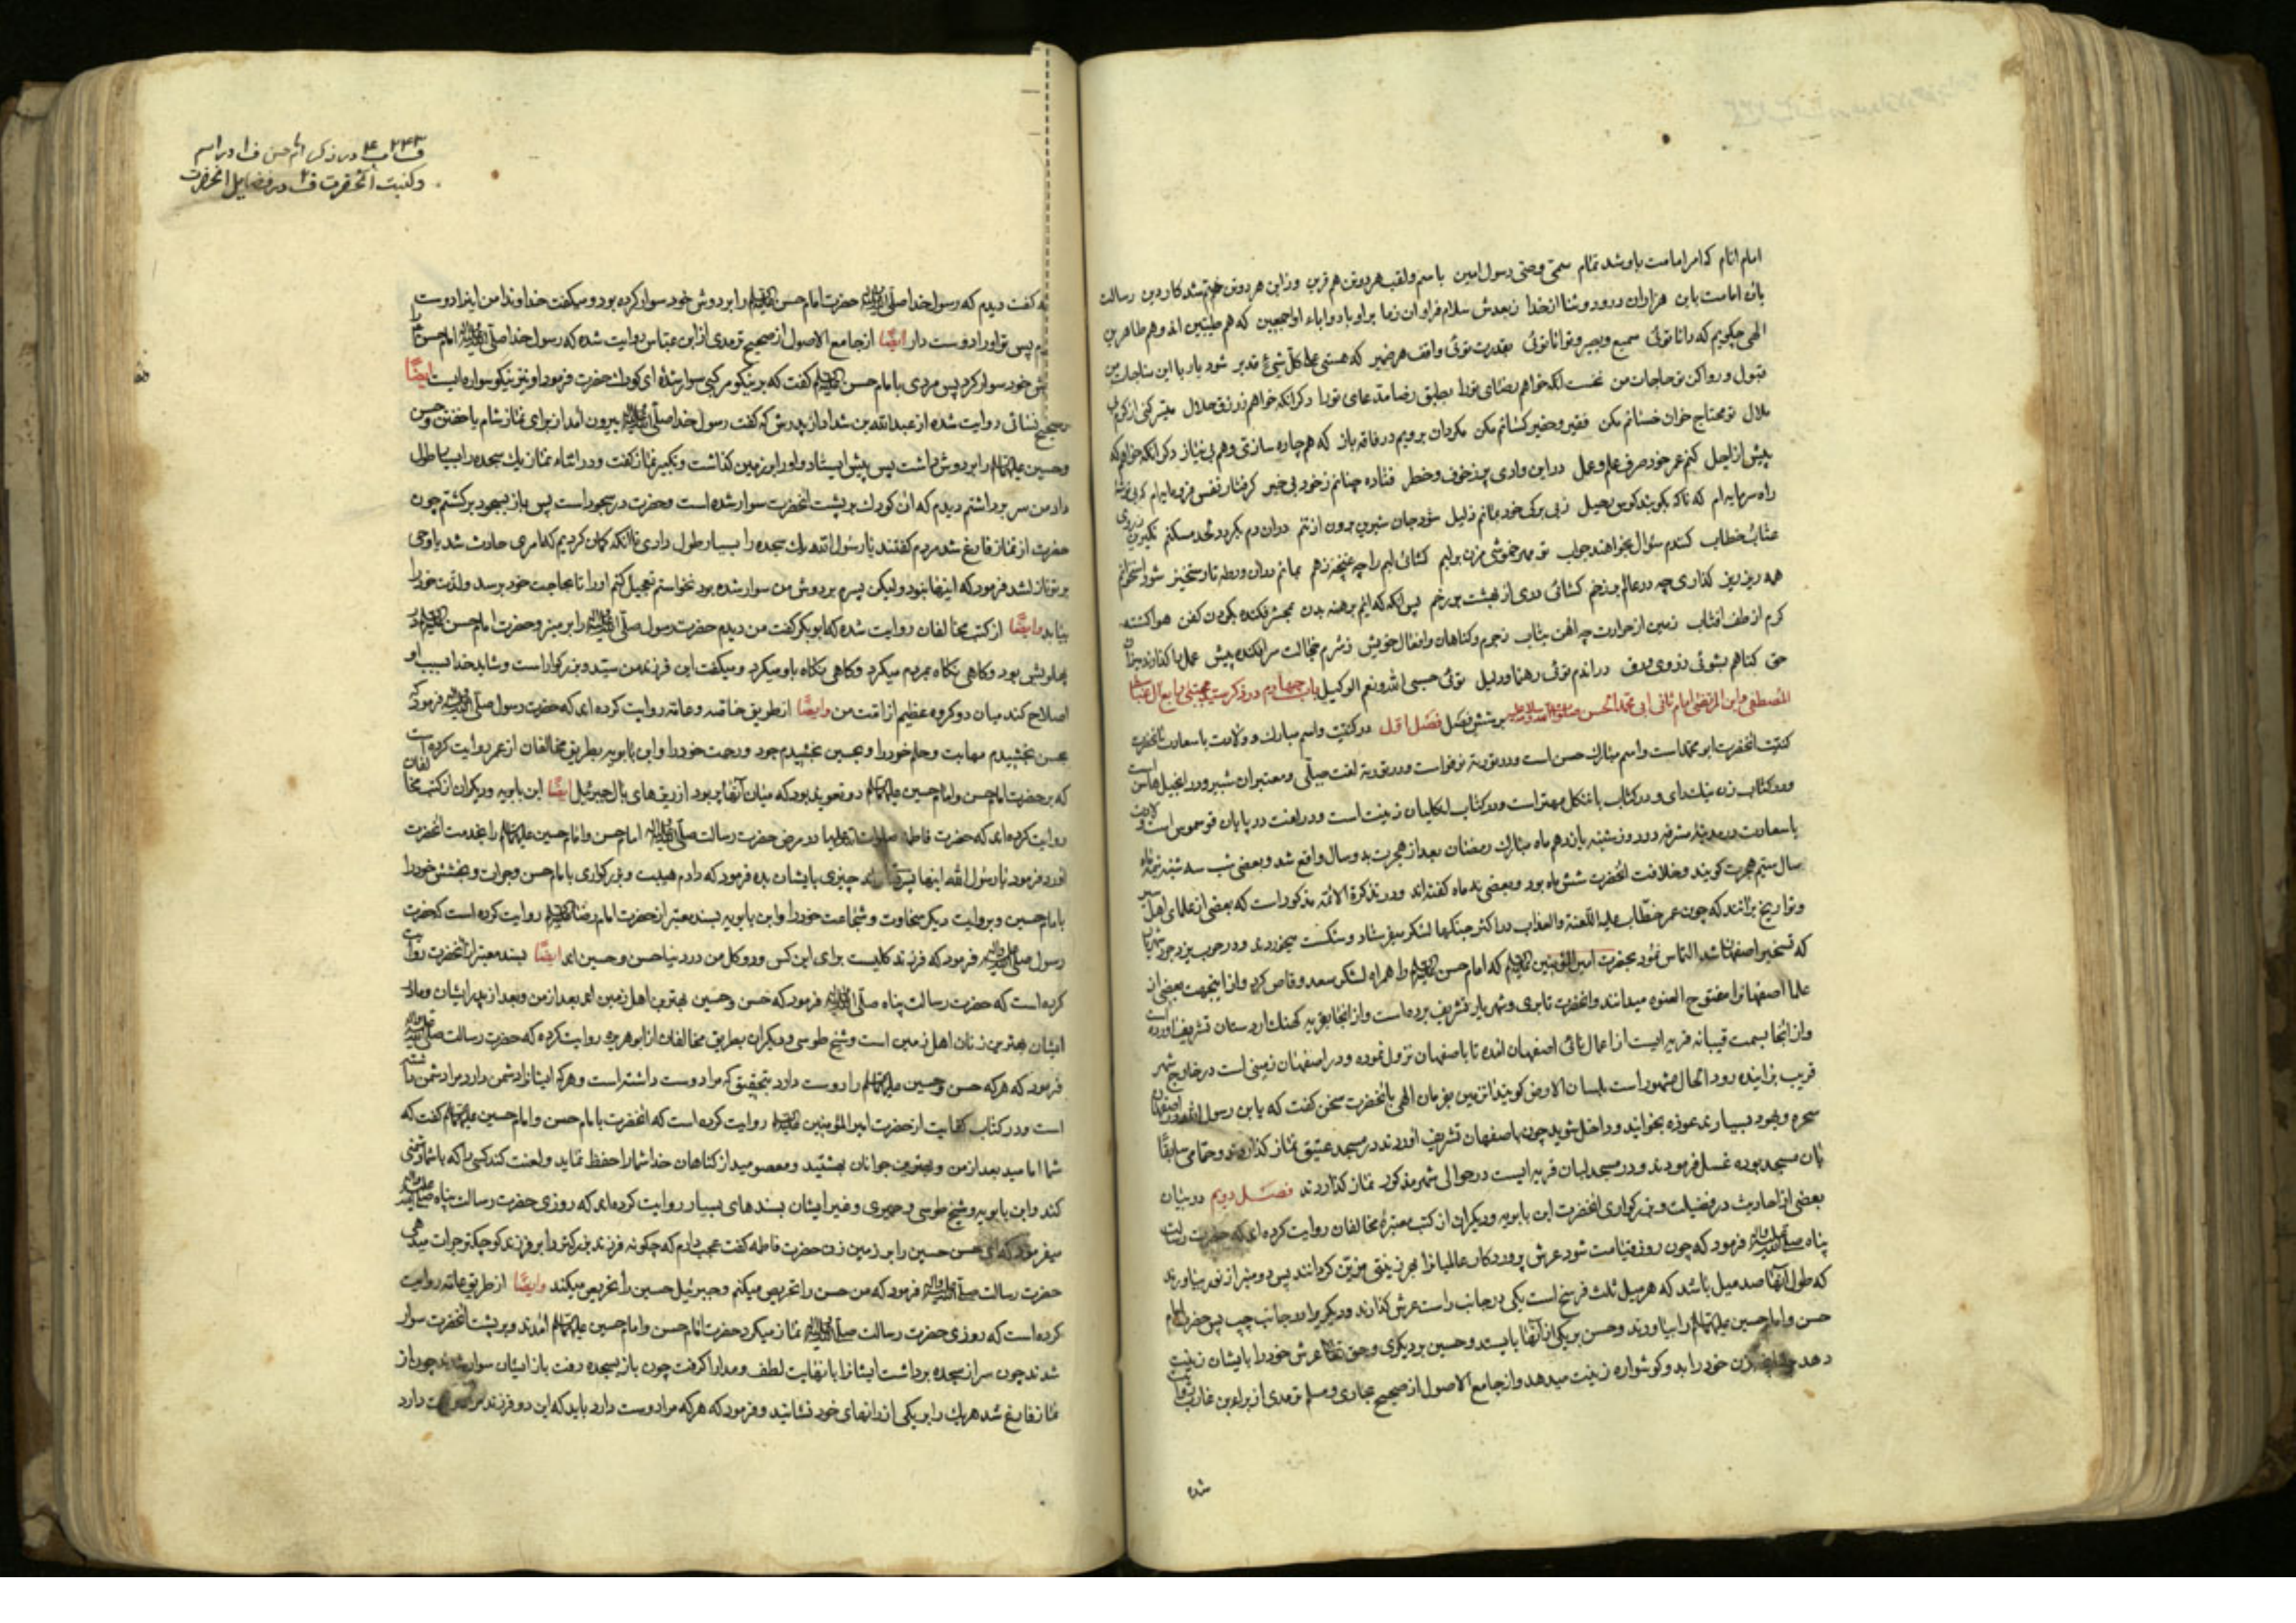 امام انام که امر امامت باو شد تمام سمی وصی رسول امین باسم ولقب هر دوتن هم قرین وزاین هر دوتن ختم شد کار دین رسالت
بان امامت باین هزاران درود وثنا از خدا زبعدش سلام فراوان زما براو باد واباء او اجمعین که هم طیبین اند وهم طاهرین
الهی چکویم که دانا توئی سمیع وبصیر وتوانا توئی بقدرت توئی واقف هر ضمیر که هستی علی کل شیء قدیر شود یا رب این مناجات من
قبول ورواکن تو حاجات من نخست انکه خواهم رضای تورا بطبق رضا مدعای تورا دکر انکه خواهم زرزق حلال میسر کنی از کرم بی
ملال تو محتاج خوان خسانم مکن فقیر وحقیر کسانم مکن مکردان برویم در فاقه باز که هم چاره سازی وهم بی نیاز دکر انکه خواهم که
پیش از اجل کنم عمر خود صرف علم وعمل در این وادی پر زخوف وخطر فتاده چنانم زخود بی خبر کرفتار نفس فرومایه ام که بی توشه
راه سرمایه ام که ناکه بکوبند کوس رحیل زبی برکی خود بمانم ذلیل شود جان شیرین برون از تنم دران دم بکردد لحد مسکنم نکیرین
عتاب خطاب کنندم سؤال بخواهند جواب تو مهر خموشی مزن بر لبم کشائی لبم را چه غنچه زهم بمانم دران ورطه تا رستخیز شود استخوانم
همه ریز ریز کذاری چه در عالم برزخم کشائی دری از بهشت بر رخم پس انکه که ایم برهنه بدن بمحشر فکنده بکردن کفن هوا کشته
کرم از طف افتاب زمین از حرارت چه اهن بتاب زجرم وکناهان وافعال خویش زشرم خجالت سر افکنده پیش عمل ها کذارند میزان
حق کناهم بشوئی زروی ورق در اندم توئی رهنما ودلیل توئی حسبی الله ونعم الوکیل باب چهارم در ذکر سید مجتبی رابع ال عبا سبط
المصطفی وابن المرتضی امام ثانی ابی محمد الحسن صلوات الله وسلامه علیه بر شش فصل فصل اول در کنیت واسم مبارک وولادت باسعادت انحضرت
کنیت انحضرت ابو محمد است واسم مبارک حسن است
باسعادت در مدینه مشرفه در روز شنبه پانزدهم ماه مبارک رمضان بعد از هجرت بدو سال واقع شد وبعضی شب سه شنبه نیمه ماه
سال سیم هجرت کویند وخلافت انحضرت شش ماه بود وبعضی ده ماه کفته اند ودر تذکرة الائمه مذکور است که بعضی از علمای اهل سیر
وتواریخ برانند که چون عمر خطاب علیه اللعنة والعذاب در اکثر جنکها لشکر میفرستاد وشکست میخوردند ودر حرب یزدجرد شهریار
که تسخیر اصفهان شد التماس نمود بحضرت امیر المؤمنین علیه السلام که امام حسن علیه السلام را همراه لشکر سعد وقاص کرد واز اینجهت بعضی از
علما اصفهانرا مفتوح العنوه میدانند وانحضرت تا بری وشهریار تشریف برده است واز انجا بقریه کهنک اردستان تشریف اورده است
واز انجا بسمت قیبانه قریه ایست از اعمال نائی اصفهان امده تا باصفهان نزول نموده ودر اصفهان زمینی است در خارج شهر
قریب بزاینده رود الحال مشهور است بلسان الارض کویند ان زمین بفرمان الهی بانحضرت سخن کفت که یابن رسول الله در اصفهان
سحره ویهود بسیارند عوذه بخوانید وداخل شوید چون باصفهان تشریف اوردند در مسجد عتیق نماز کذاردند ودر حمامی سابقا
نان مسجد بوده غسل فرمودند ودر مسجد لبان قریه ایست در حوالی شهر مذکور نماز کذاردند فصل دویم در بیان
بعضی از احادیث در فضیلت وبزرکواری انحضرت ابن بابویه ودیکران از کتب معتبره مخالفان روایت کرده اند که حضرت رسالت
پناه صلی الله علیه واله فرمود که چون روز قیامت شود عرش پروردکار عالمیانرا بهر زینتی مزین کردانند پس دو منبر از نور بیاورند
که طول آنها صد میل باشد که هر میل ثلث فرسخ است یکی در جانب راست عرش کذارند ودیکریرا در جانب چپ پس حضرت امام
حسن وامام حسین علیهما السلام را بیاورند وحسن بر یکی از آنها بایستد وحسین بر دیکری وحق تعالی عرش خود را بایشان زینت
دهد چنانچه زن خود را بدو کوشواره زینت میدهد واز جامع الاصول از صحیح بخاری ومسلم ترمدی از براء بن عازب روایت
شده
۲۴۳
ف ب ۴ در ذکر امام حسن ف ۱ در اسم
وکنیت انحضرت ف ۲ در فضایل انحضرت
که کفت دیدم که رسول خدا صلی الله علیه واله حضرت امام حسن علیه السلام را بر دوش خود سوار کرده بود ومیکفت خداوندا من اینرا دوست
پس تو اورا دوست دار ایضا از جامع الاصول از صحیح ترمدی از ابن عباس روایت شده که رسول خدا صلی الله علیه واله امام حسن را
خود سوار کرد پس مردی با امام حسن علیه السلام کفت که بر نیکو مرکبی سوار شدۀ ای کودک حضرت فرمود او نیز نیکو سواره ایست ایضا
صحیح نسائی روایت شده از عبد الله بن شداد از پدرش که کفت رسول خدا صلی الله علیه واله بیرون امد از برای نماز شام یا خفتن وحسن
وحسین علیهما السلام را بر دوش داشت پس پیش ایستاد واورا بر زمین کذاشت وتکبیر نماز کفت ودر اثناء نماز یک سجده را بسیار طول
داد من سر برداشتم دیدم که ان کودک بر پشت انحضرت سوار شده است وحضرت در سجود است پس باز بسجود برکشتم چون
حضرت از نماز فارغ شد مردم کفتند یا رسول الله یک سجده را بسیار طول دادی تا انکه کمان کردیم که امری حادث شد یا وحی
بر تو نازل شد فرمود که اینها نبود ولیکن پسرم بر دوش من سوار شده بود نخواستم تعجیل کنم اورا تا بحاجت خود برسد ولذت خود را
بیابد وایضا از کتب مخالفان روایت شده که ابو بکر کفت من دیدم حضرت رسول صلی الله علیه واله را بر منبر وحضرت امام حسن علیه السلام در
پهلویش بود وکاهی نکاه بمردم میکرد وکاهی نکاه باو میکرد ومیکفت این فرزند من سید وبزرکوار است وشاید خدا بسبب او
اصلاح کند میان دو کروه عظیم از امت من وایضا از طریق خاصه وعامه روایت کرده اند که حضرت رسول صلی الله علیه واله فرمود که
بحسن بخشیدم مهابت وحلم خود را وبحسین بخشیدم جود ورحمت خود را وابن بابویه بطریق مخالفان از عمر روایت کرده است
که بر حضرت امام حسن وامام حسین علیهما السلام دو تعویذ بود که میان آنها پر بود از ریزهای بال جبرئیل ایضا ابن بابویه ودیکران از کتب مخالفان
روایت کرده اند که حضرت فاطمه صلوات الله علیها در مرض حضرت رسالت صلی الله علیه واله امام حسن وامام حسین علیهما السلام را بخدمت انحضرت
اورد فرمود یا رسول الله اینها پسران تواند چیزی بایشان بده فرمود که دادم هیبت وبزرکواری با امام حسن وجرات وبخشش خود را
بامام حسین وبروایت دیکر سخاوت وشجاعت خود را وابن بابویه بسند معتبر از حضرت امام رضا علیه السلام روایت کرده است که حضرت
رسول صلی الله علیه واله فرمود که فرزند کلیست برای این کس ودو کل من در دنیا حسن وحسین اند ایضا بسند معتبر از انحضرت روایت
کرده است که حضرت رسالت پناه صلی الله علیه واله فرمود که حسن وحسین بهترین اهل زمین اند بعد از من وبعد از پدر ایشان ومادر
ایشان بهترین زنان اهل زمین است وشیخ طوسی ودیکران بطریق مخالفان از ابو هریره روایت کرده که حضرت رسالت صلی الله علیه واله
فرمود که هر که حسن وحسین علیهما السلام را دوست دارد بتحقیق که مرا دوست داشته است وهر که ایشانرا دشمن دارد مرا دشمن داشته
است ودر کتاب کفایت از حضرت امیر المؤمنین علیه السلام روایت کرده است که انحضرت با امام حسن وامام حسین علیهما السلام کفت که
شما امامید بعد از من وبهترین جوانان بهشتید ومعصومید از کناهان خدا شما را حفظ نماید ولعنت کند کسی را که با شما دشمنی
کند وابن بابویه وشیخ طوسی وحمیری وغیر ایشان بسندهای بسیار روایت کرده اند که روزی حضرت رسالت پناه صلی الله علیه واله
میفرمود که ای حسن حسین را بر زمین زن حضرت فاطمه کفت عجب دارم که چکونه فرزند بزرکتر را بر فرزند کوچکتر جرات میدهی
حضرت رسالت صلی الله علیه واله فرمود که من حسن را تحریص میکنم وجبرئیل حسین را تحریص میکند وایضا از طریق عامه روایت
کرده است که روزی حضرت رسالت صلی الله علیه واله نماز میکرد حضرت امام حسن وامام حسین علیهما السلام امدند وبر پشت انحضرت سوار
شدند چون سر از سجده برداشت ایشانرا با نهایت لطف ومدارا کرفت چون باز بسجده رفت باز ایشان سوار شدند چون از
نماز فارغ شد هریک را بر یکی از رانهای خود نشانید وفرمود که هر که مرا دوست دارد باید که این دو فرزند مرا دوست دارد